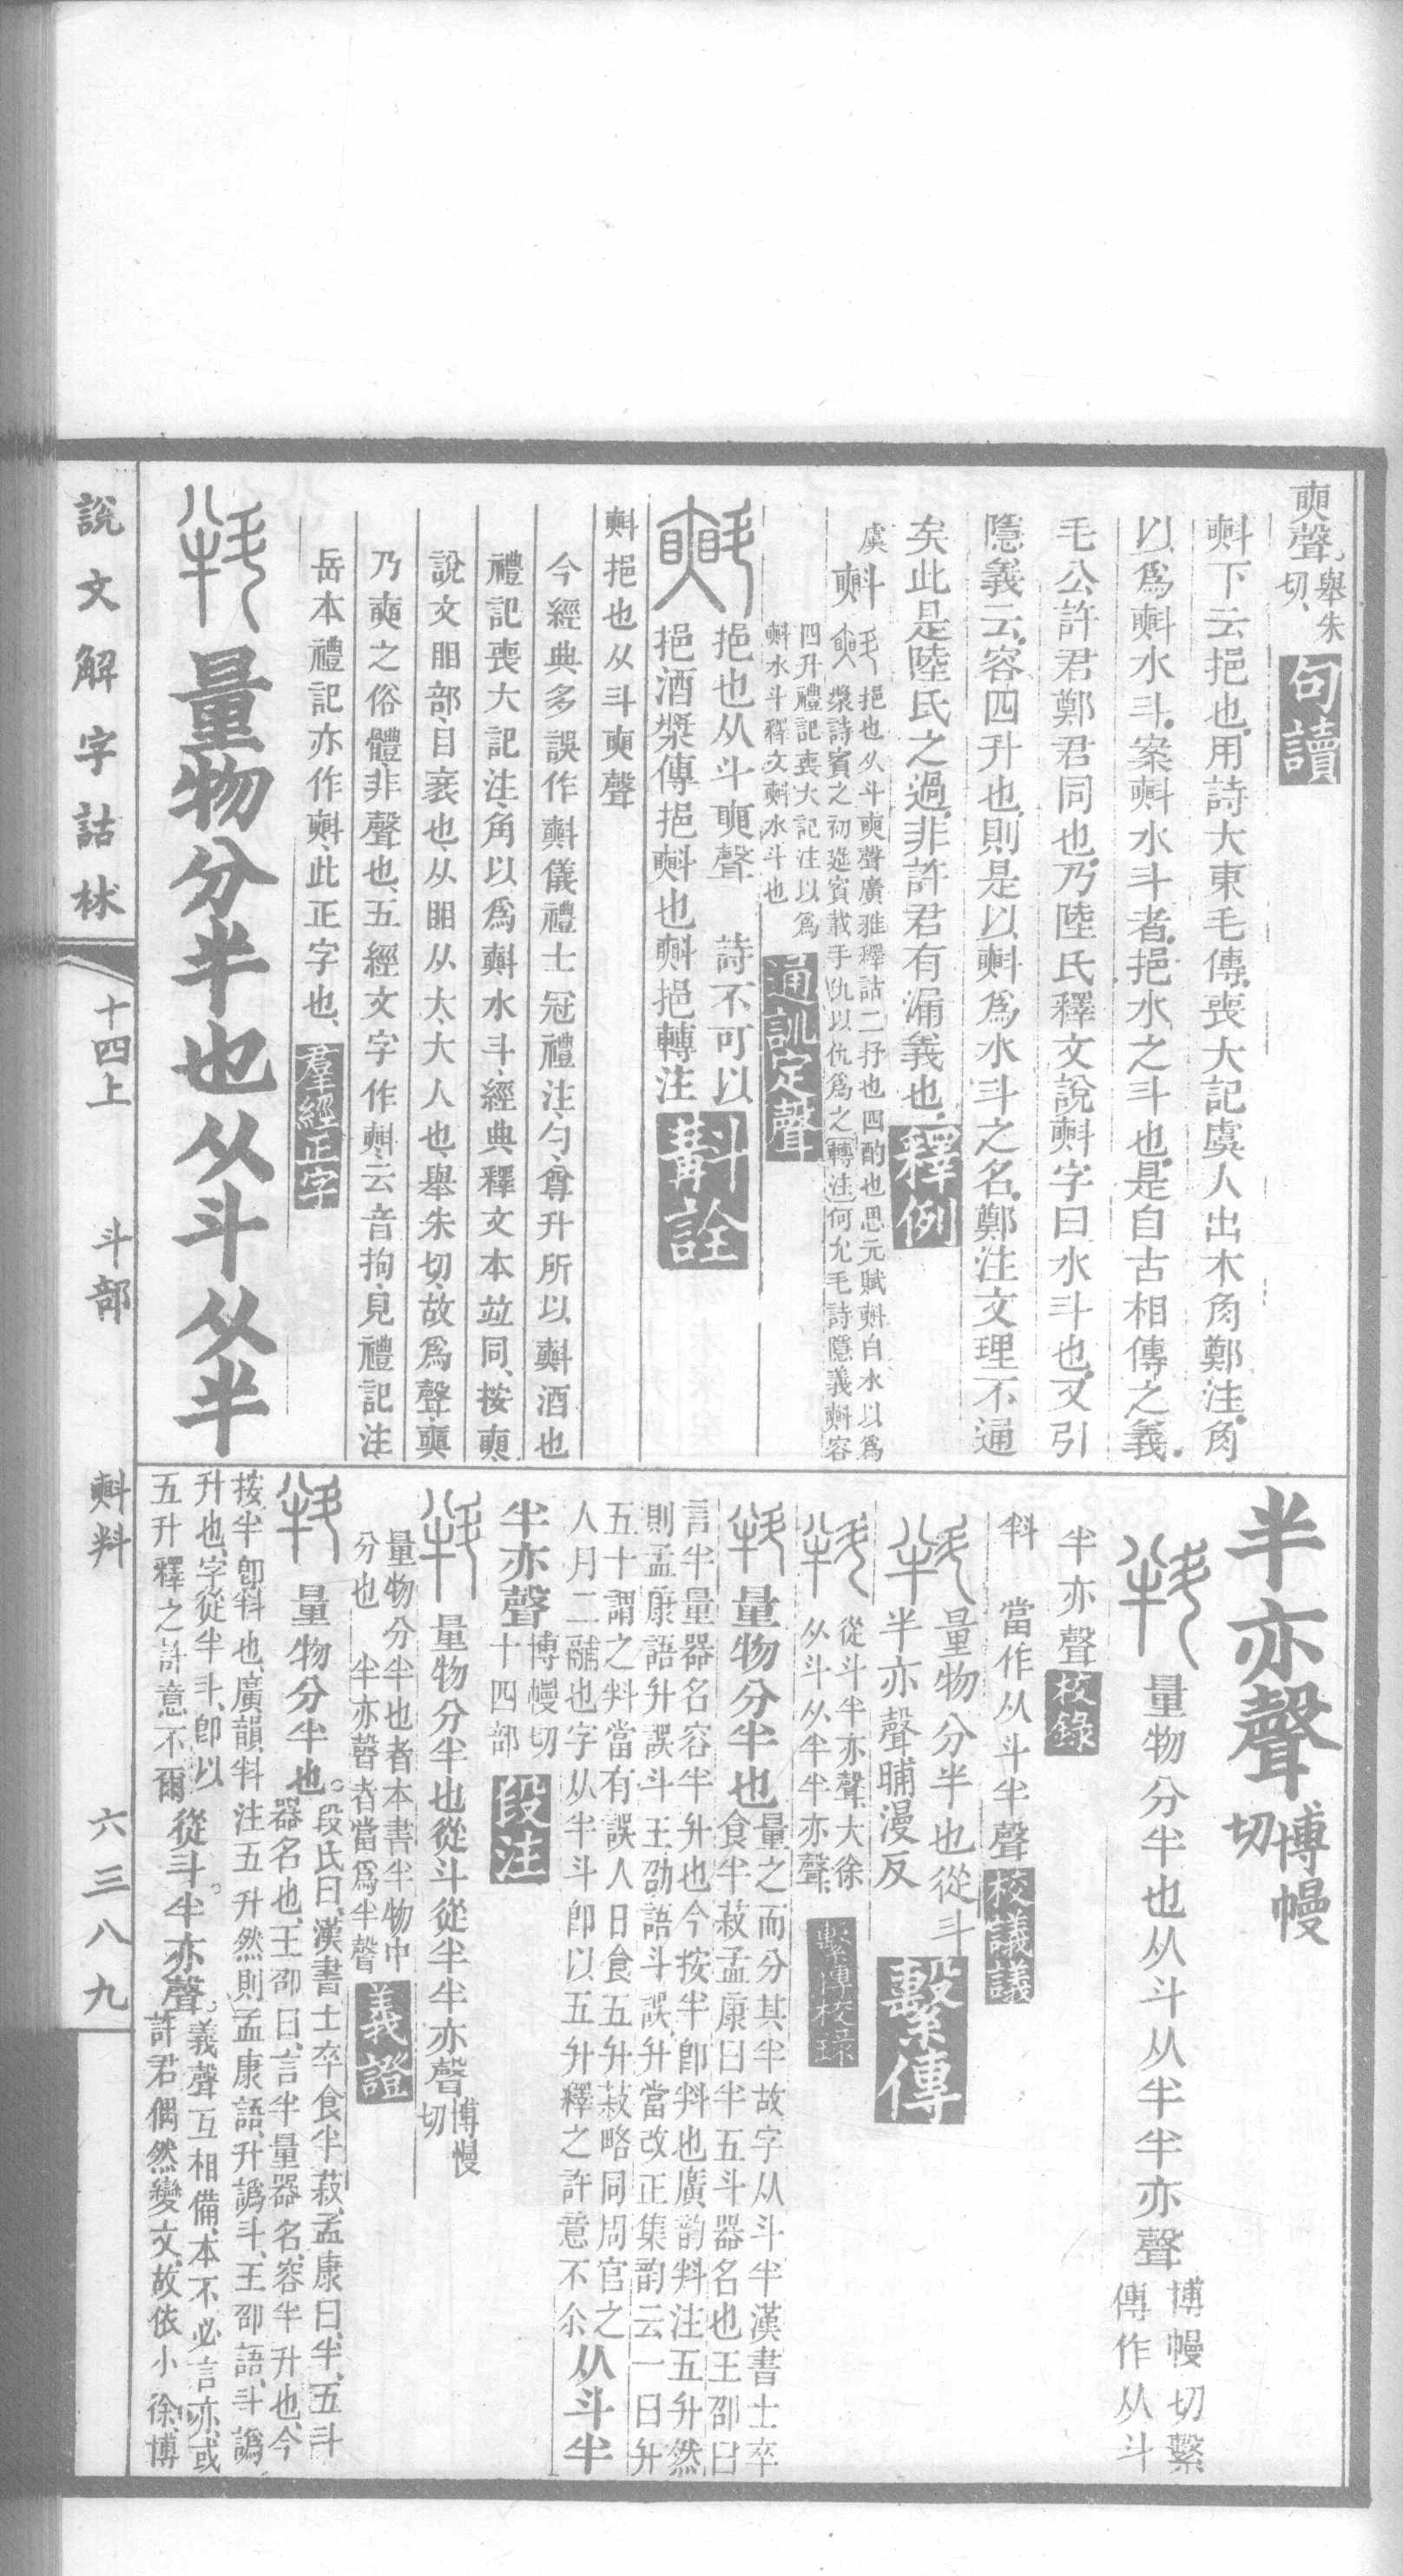 䀠聲舉朱
切句讀
㪺下云挹也用詩大東毛傳喪大記虞人出木角鄭注角
以爲㪺水斗案㪺水斗者挹水之斗也是自古相傳之義
毛公許君鄭君同也乃陸氏釋文說㪺字曰水斗也又引
隱義云容四升也則是以㪺爲水斗之名鄭注文理不通
矣此是陸氏之過非許君有漏義也釋例
虞㪺
挹也从斗聲廣雅釋詁二抒也四酌也思元賦㪺白水以爲
漿詩賓之初筵賓載手仇以仇爲之轉注何允毛詩隱義㪺容
四升禮記喪大記注以爲
㪺水斗釋文㪺水斗也
通訓定聲
挹也从斗聲 詩不可以
挹酒漿傳挹㪺也㪺挹轉注
斠詮
㪺挹也从斗聲
今經典多誤作㪺儀禮士冠禮注勺尊升所以㪺酒也
禮記喪大記注角以爲㪺水斗經典釋文本竝同按
說文䀠部目衺也从䀠从大大人也舉朱切故爲聲
乃之俗體非聲也五經文字作㪺云音拘見禮記注
岳本禮記亦作㪺此正字也羣經正字
量物分半也从斗从半
半亦聲博幔
切
量物分半也从斗从半半亦聲博幔切繫
傳作从斗
半亦聲校錄
料 當作从斗半聲校議議
量物分半也從斗
半亦聲晡漫反
繫傳
從斗半亦聲大徐
从斗从半半亦聲
繫傳校錄
量物分半也量之而分其半故字从斗半漢書士卒
食半菽孟康曰半五斗器名也王邵曰
言半量器名容半升也今按半卽料也廣韵料注五升然
則孟康語升誤斗王劭語斗誤升當改正集韵云一曰升
五十謂之料當有誤人日食五升菽略同周官之
人月二鬴也字从半斗卽以五升釋之許意不尒从斗半
半亦聲博幔切
十四部
段注
量物分半也從斗從半半亦聲博幔
切
量物分半也者本書半物中
分也 半亦聲者當爲半聲
義證
量物分半也段氏曰漢書士卒食半菽孟康曰半五斗
器名也王邵曰言半量器名容半升也今
按半卽料也廣韻料注五升然則孟康語升譌斗王邵語斗譌
升也字從半斗卽以
五升釋之許意不爾從斗半亦聲義聲互相備本不必言亦或
許君偶然變文故依小徐博
說文解字詁林
十四上
斗部
㪺料
六三八九